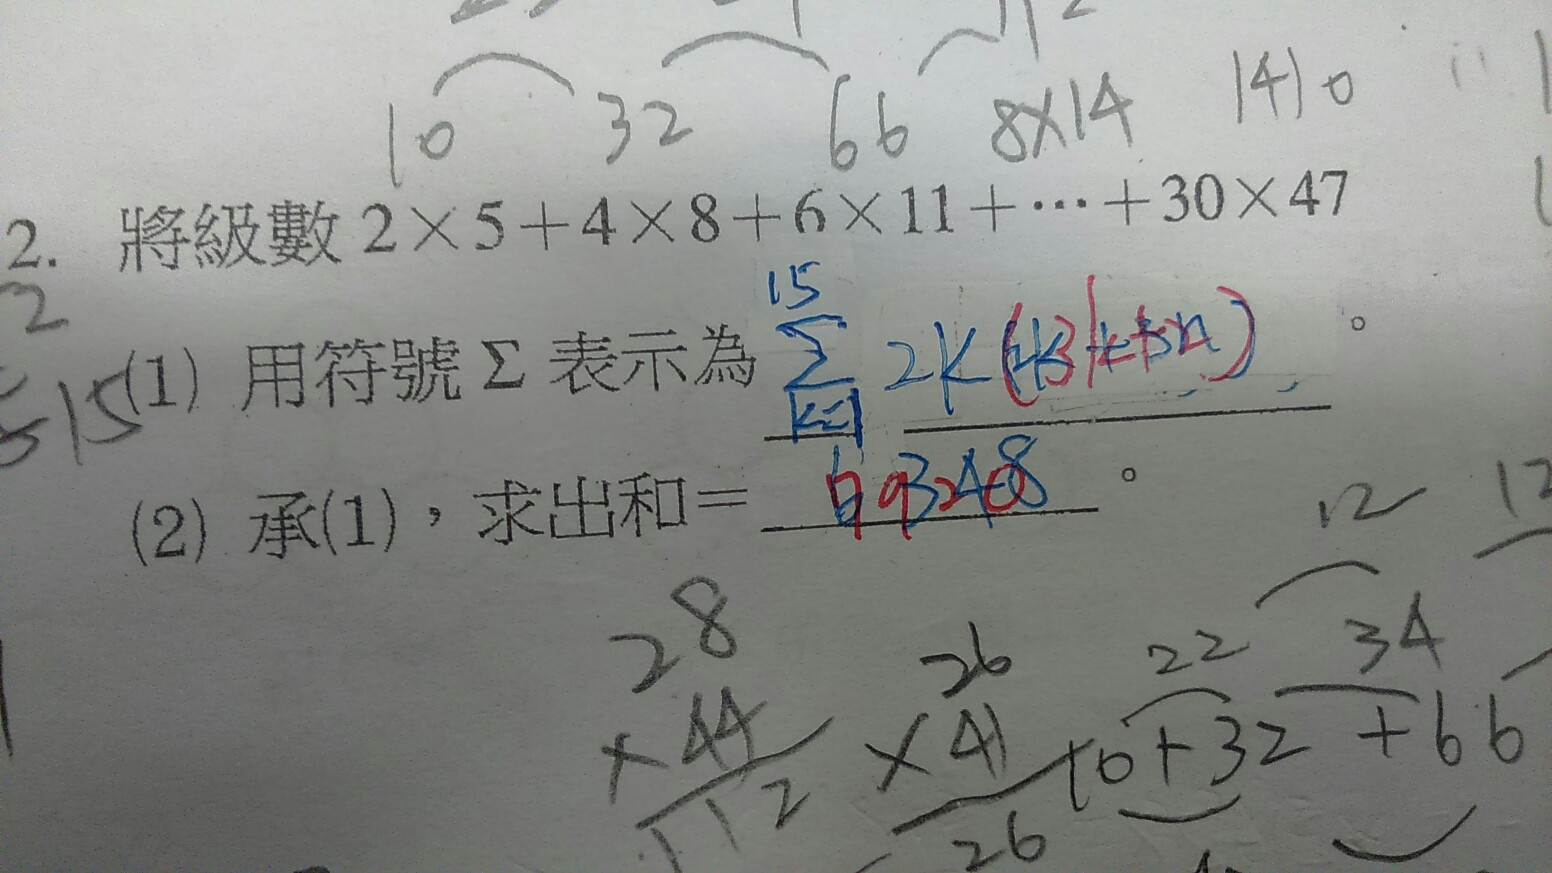 10 32 66 8×14 1410
2. 將級數 2×5+4×8+6×11+⋯+30×47
2
(1) 用符號 Σ 表示為 15 Σ k=1 2k( )。
=15
(2) 承(1)，求出和= 。
12 12
28 26 22 34
×44 ×41 10+32+66
112 26